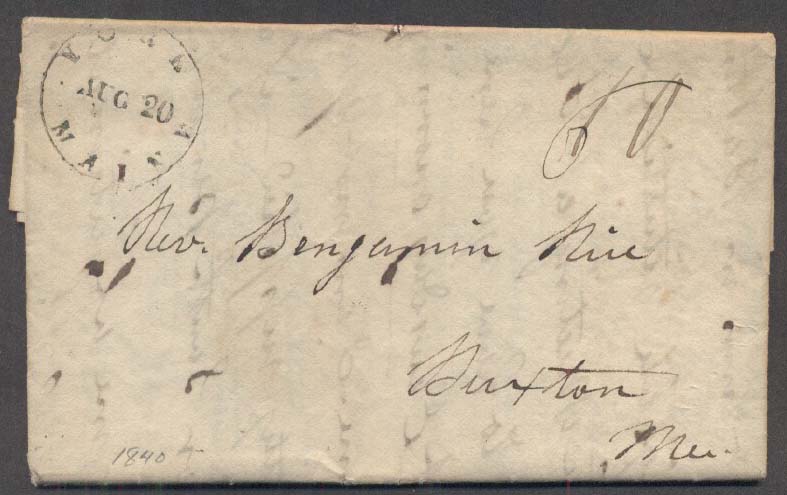 YORK
AUG 20
MAINE
10
Rev. Benjamin Rice
Buxton
Me.
1840